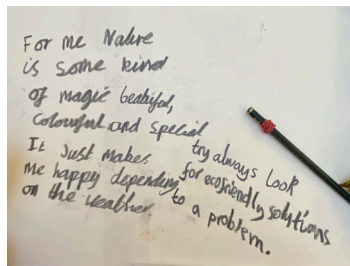 For me Nature
is some kind
of magic beatiful,
colourful and special
It just makes
me happy depending
on the weather.
try always look
for ecofriendly solutions
to a problem.